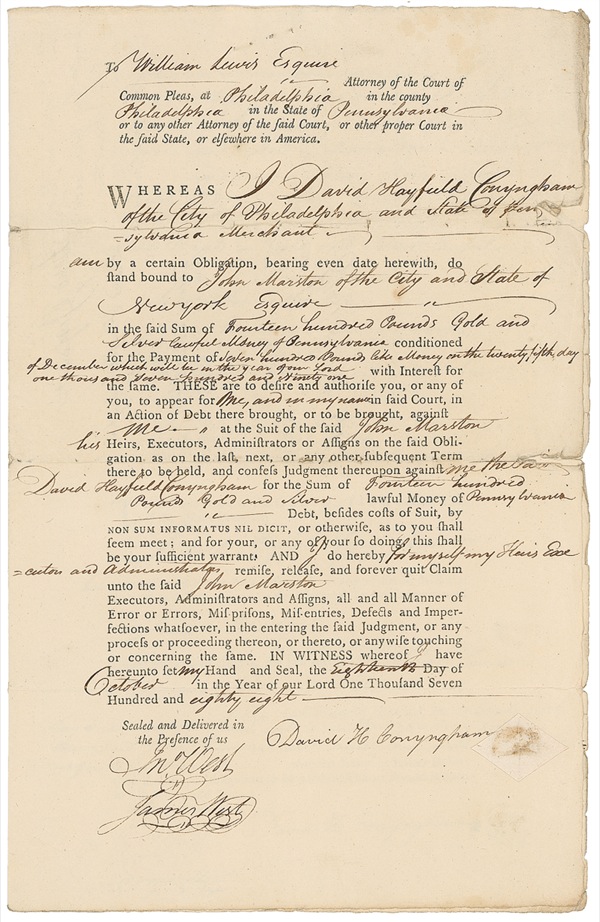 To William Lewis Esquire
Attorney of the Court of
Common Pleas, at Philadelphia in the county
Philadelphia in the State of Pennsylvania
or to any other Attorney of the ſaid Court, or other proper Court in
the ſaid State, or elſewhere in America.
WHEREAS I David Hayfield Conyngham
of the City of Philadelphia and State of Pen
=sylvania Merchant
am by a certain Obligation, bearing even date herewith, do
ſtand bound to John Marston of the City and State of
New york Esquire
in the ſaid Sum of Fourteen hundred Pounds Gold and
Silver Lawful Money of Pennsylvania conditioned
for the Payment of Seven hundred Pounds like Money on the twenty fifth day
of December which will be in the year of our Lord
one thousand and seven hundred and ninety one with Intereſt for
the ſame. THESE are to deſire and authoriſe you, or any of
you, to appear for me, and in my name in ſaid Court, in
an Action of Debt there brought, or to be brought, againſt
Me at the Suit of the ſaid John Marston
his Heirs, Executors, Adminiſtrators or Aſſigns on the ſaid Obli-
gation as on the laſt, next, or any other ſubſequent Term
there to be held, and confeſs Judgment thereupon againſt me the Said
David Hayfield Conyngham for the Sum of Fourteen hundred
Pounds Gold and Silver lawful Money of Pennsylvania
Debt, beſides coſts of Suit, by
NON SUM INFORMATUS NIL DICIT, or otherwiſe, as to you ſhall
ſeem meet; and for your, or any of your ſo doing, this ſhall
be your ſufficient warrant. AND I do hereby for myself my Heirs Exe
=cutors and Administrators remiſe, releaſe, and forever quit Claim
unto the ſaid John Marston
Executors, Adminiſtrators and Aſſigns, all and all Manner of
Error or Errors, Miſ-priſons, Miſ-entries, Defects and Imper-
fections whatſoever, in the entering the ſaid Judgment, or any
proceſs or proceeding thereon, or thereto, or anywiſe touching
or concerning the ſame. IN WITNESS whereof I have
hereunto ſet my Hand and Seal, the Eighteenth Day of
October in the Year of our Lord One Thouſand Seven
Hundred and eighty eight
Sealed and Delivered in
the Preſence of us
David H Conyngham
Jno West
James West